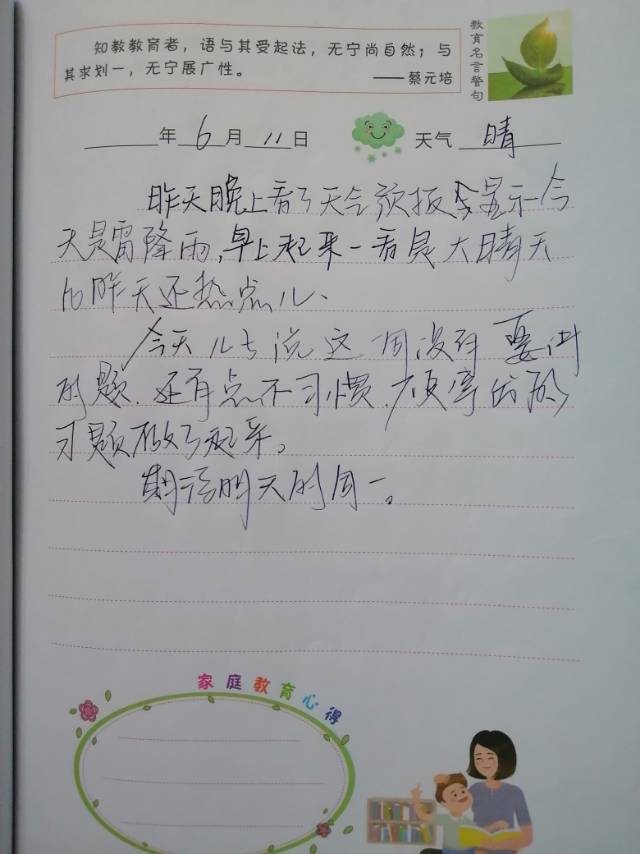 知教教育者，语与其受起法，无宁尚自然；与
其求划一，无宁展广性。
——蔡元培
教育名言警句
年 6 月 11 日 天气 晴
昨天晚上看了天气预报显示今
天是雷降雨,早上起来一看是大晴天
比昨天还热点儿、
今天儿子说这周没有要讲
的题.还有点不习惯.
习题做了起来。
期待明天的周一。
家庭教育心得